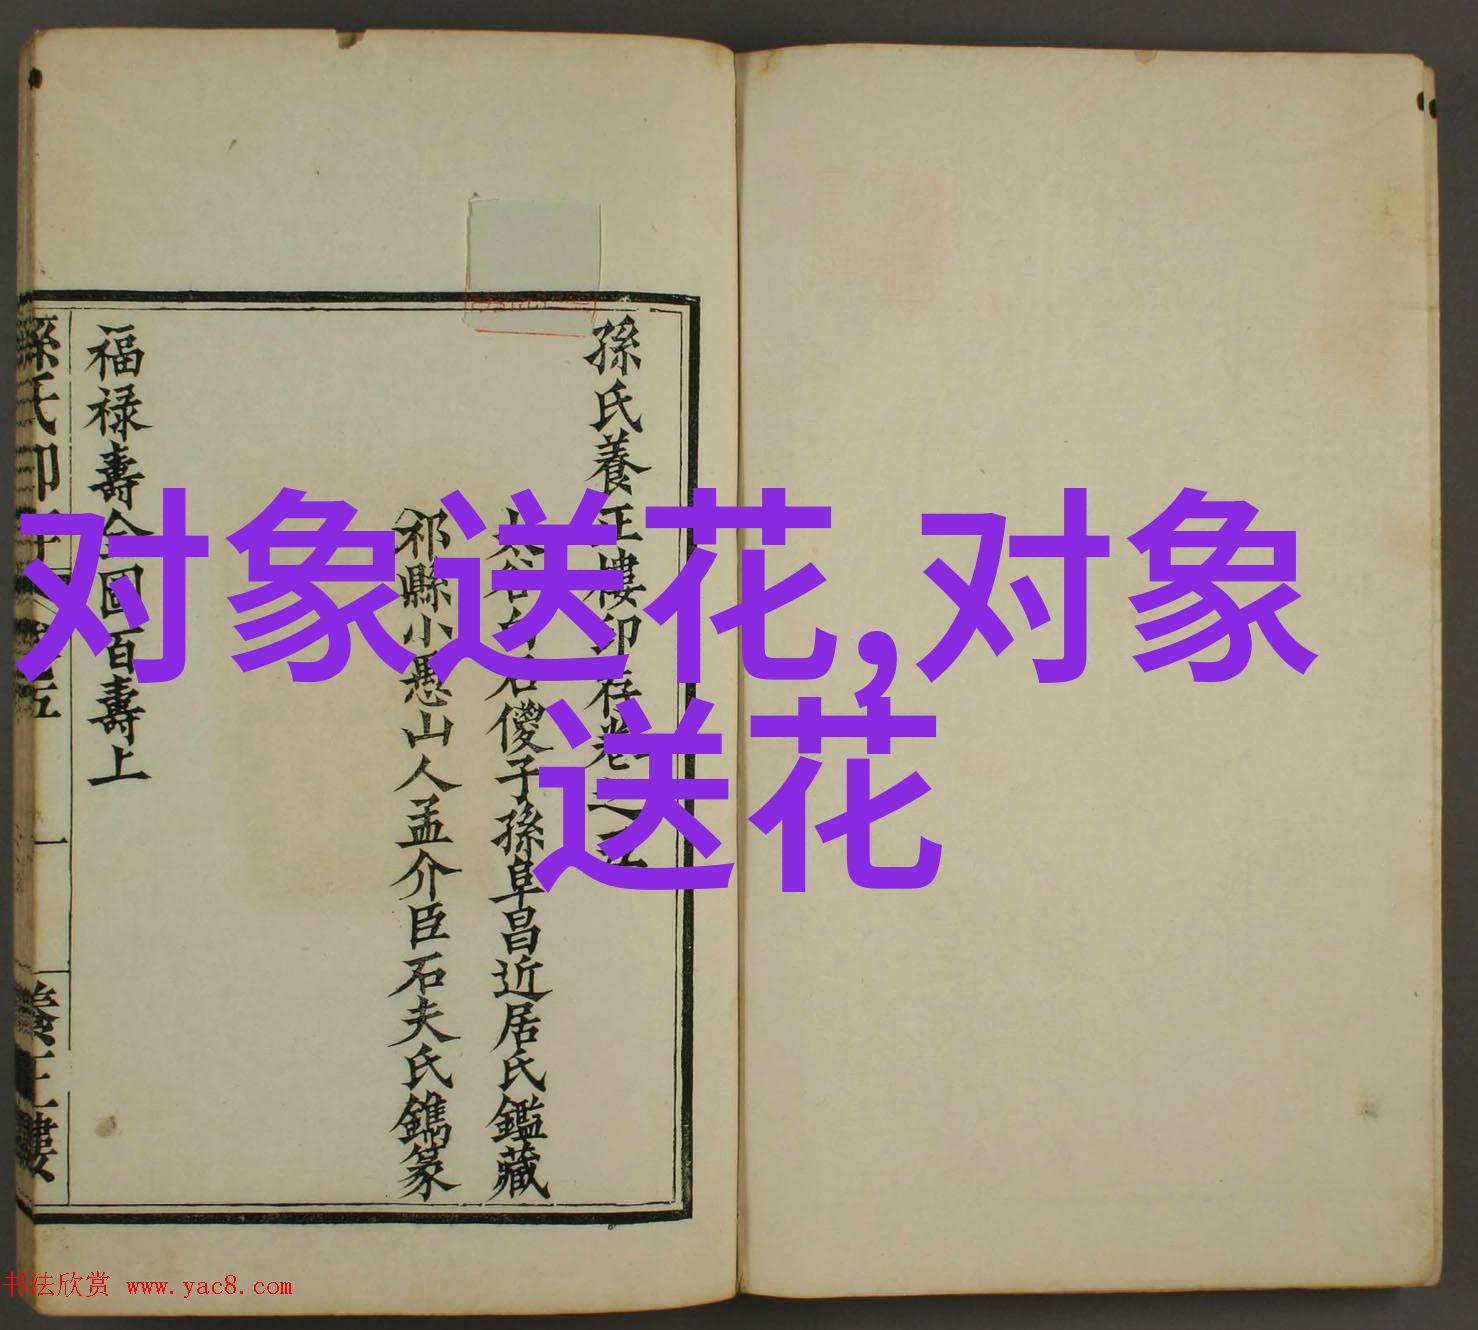 对象送花,对象
送花
孫氏養正樓印存卷之五
太谷白石傻子孫阜昌近居氏鑑藏
祁縣小憑山人孟介臣石夫氏鐫篆
福祿壽全圖百壽上
孫氏印存
養正樓
书法欣赏 www.yac8.com